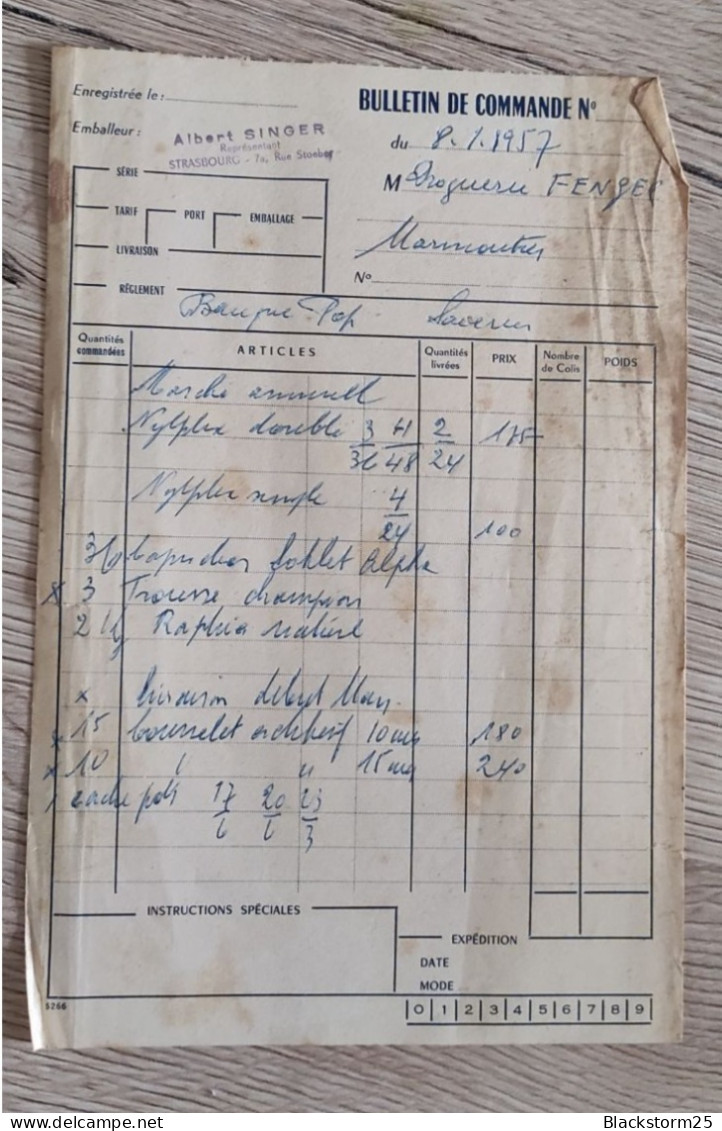 Enregistrée le :
BULLETIN DE COMMANDE N°
Emballeur :
Albert SINGER
Représentant
STRASBOURG - 7a, Rue
du 8.1.1957
SÉRIE
M Droguerie FENGER
TARIF PORT EMBALLAGE
Marmoutier
LIVRAISON
N°
RÉGLEMENT
Banque Pop. Saverne
Quantités commandées
ARTICLES
Quantités livrées
PRIX
Nombre de Colis
POIDS
Marché annuel
Nylplex double 3/36 4/48 2/24 175
Nylplex simple 4/24 100
36 Alpha
x 3 Trousse champion
2 Raphia naturel
x livraison début Mars
x 15 bourrelet adhésif 10 mm 180
x 10 " 15 mm 240
x cache pots 17/6 20/6 23/3
INSTRUCTIONS SPÉCIALES
EXPÉDITION
DATE
MODE
5266
0 1 2 3 4 5 6 7 8 9
Blackstorm25